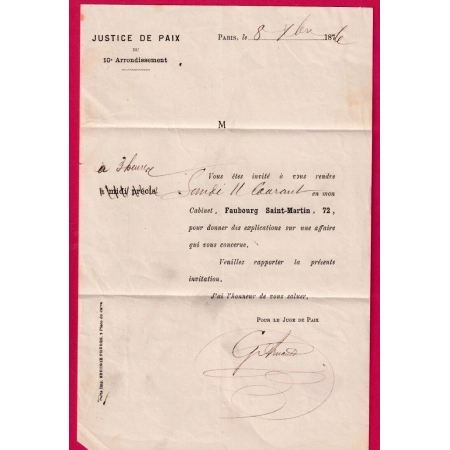 JUSTICE DE PAIX
DU
10e Arrondissement
PARIS, le 8 7bre 1876
M
à 3 heures
à midi précis
Vous êtes invité à vous rendre
Lundi 11 Courant en mon
Cabinet, Faubourg Saint-Martin, 72,
pour donner des explications sur une affaire
qui vous concerne.
Veuillez rapporter la présente
invitation.
J'ai l'honneur de vous saluer.
POUR LE JUGE DE PAIX